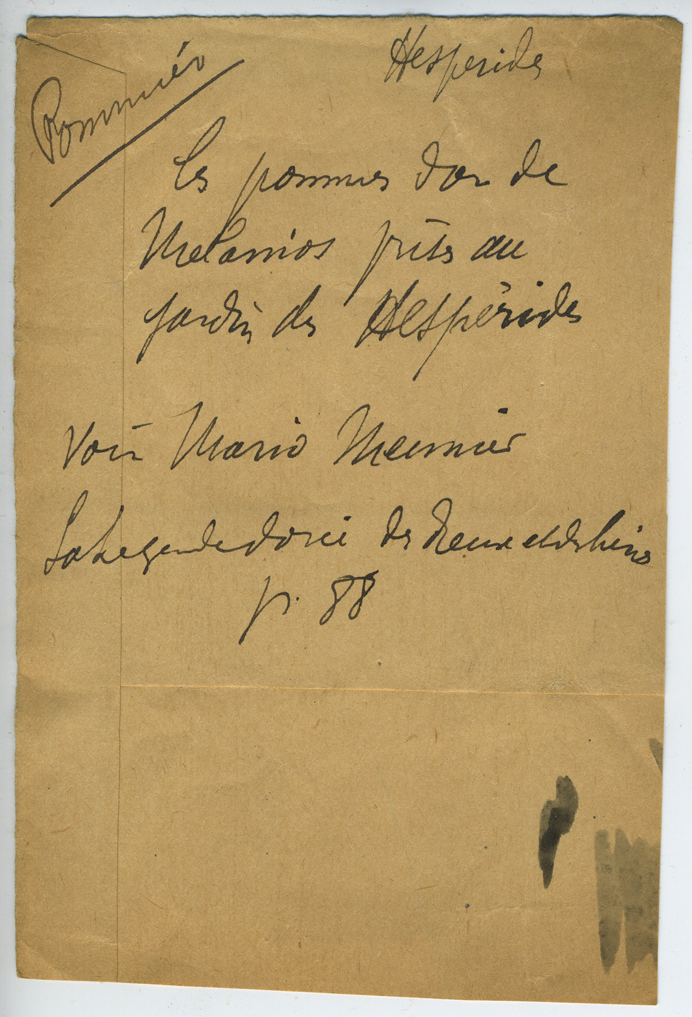 Pommier
Hespérides
les pommes d'or de
Melanios prises au
jardin des Hespérides
Voir Mario Meunier
La Legende dorée des Dieux et des héros
p. 88